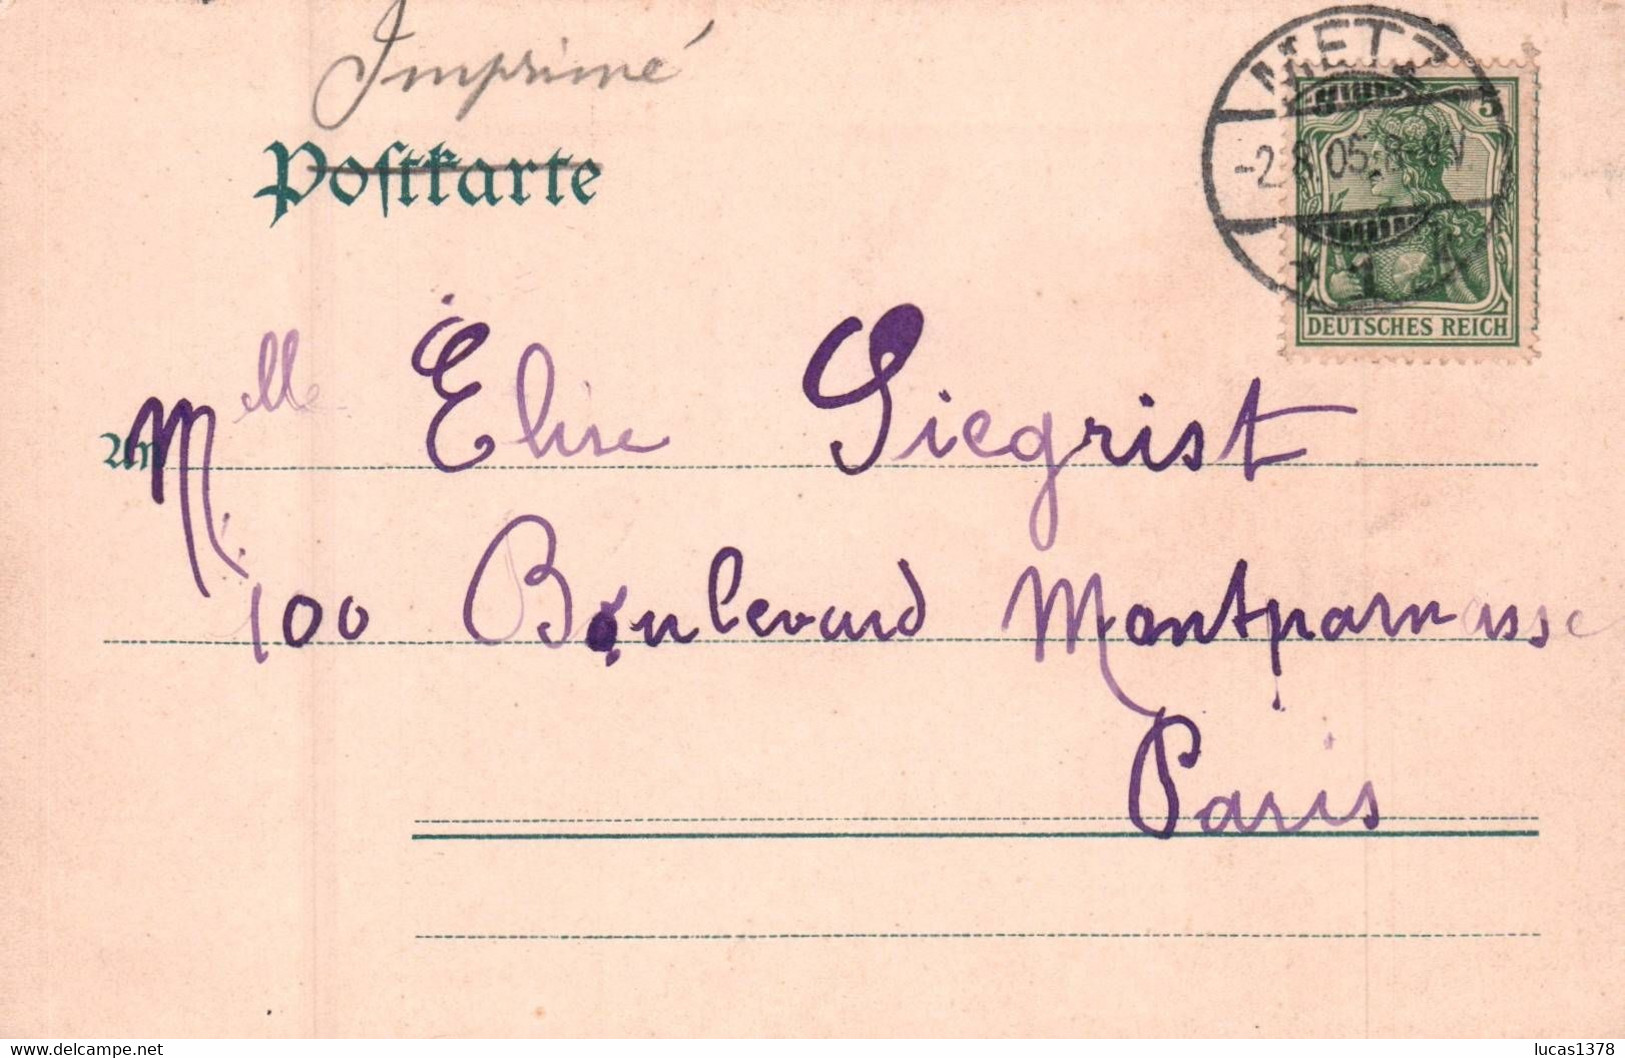 Imprimé
Postkarte
METZ
-2.8.05.8-9V.
* 1
5
DEUTSCHES REICH
An
Mlle Élise Siegrist
100 Boulevard Montparnasse
Paris
lucas1378